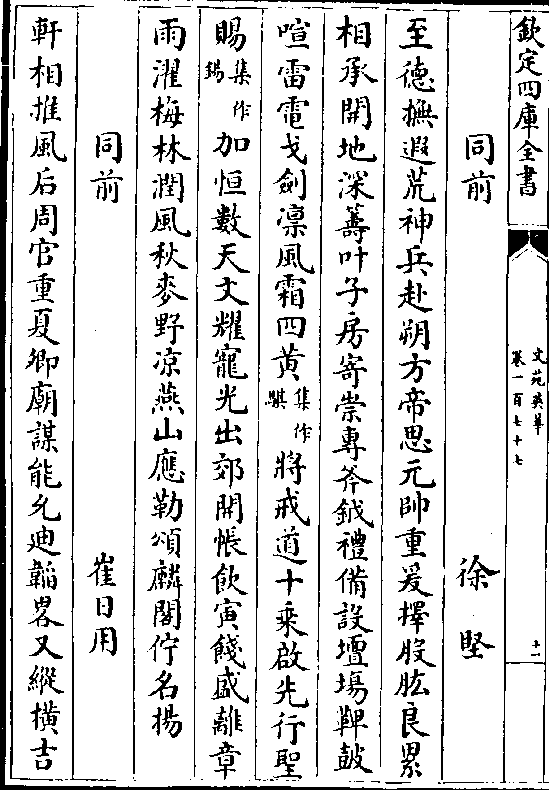 欽定四庫全書
文苑英華
卷一百七十七
十一
同前
徐堅
至德撫遐荒神兵赴朔方帝思元帥重爰擇股肱良累
相承開地深籌叶子房寄崇專斧鉞禮備設壇塲鞞皷
喧雷電戈劍凛風霜四黄集作騏將戒道十乘啟先行聖
賜集作錫加恒數天文耀寵光出郊開帳飲寅餞盛離章
雨濯梅林潤風秋麥野凉燕山應勒頌麟閣佇名揚
同前
崔日用
軒相推風后周官重夏卿廟謀能允迪韜畧又縱横吉